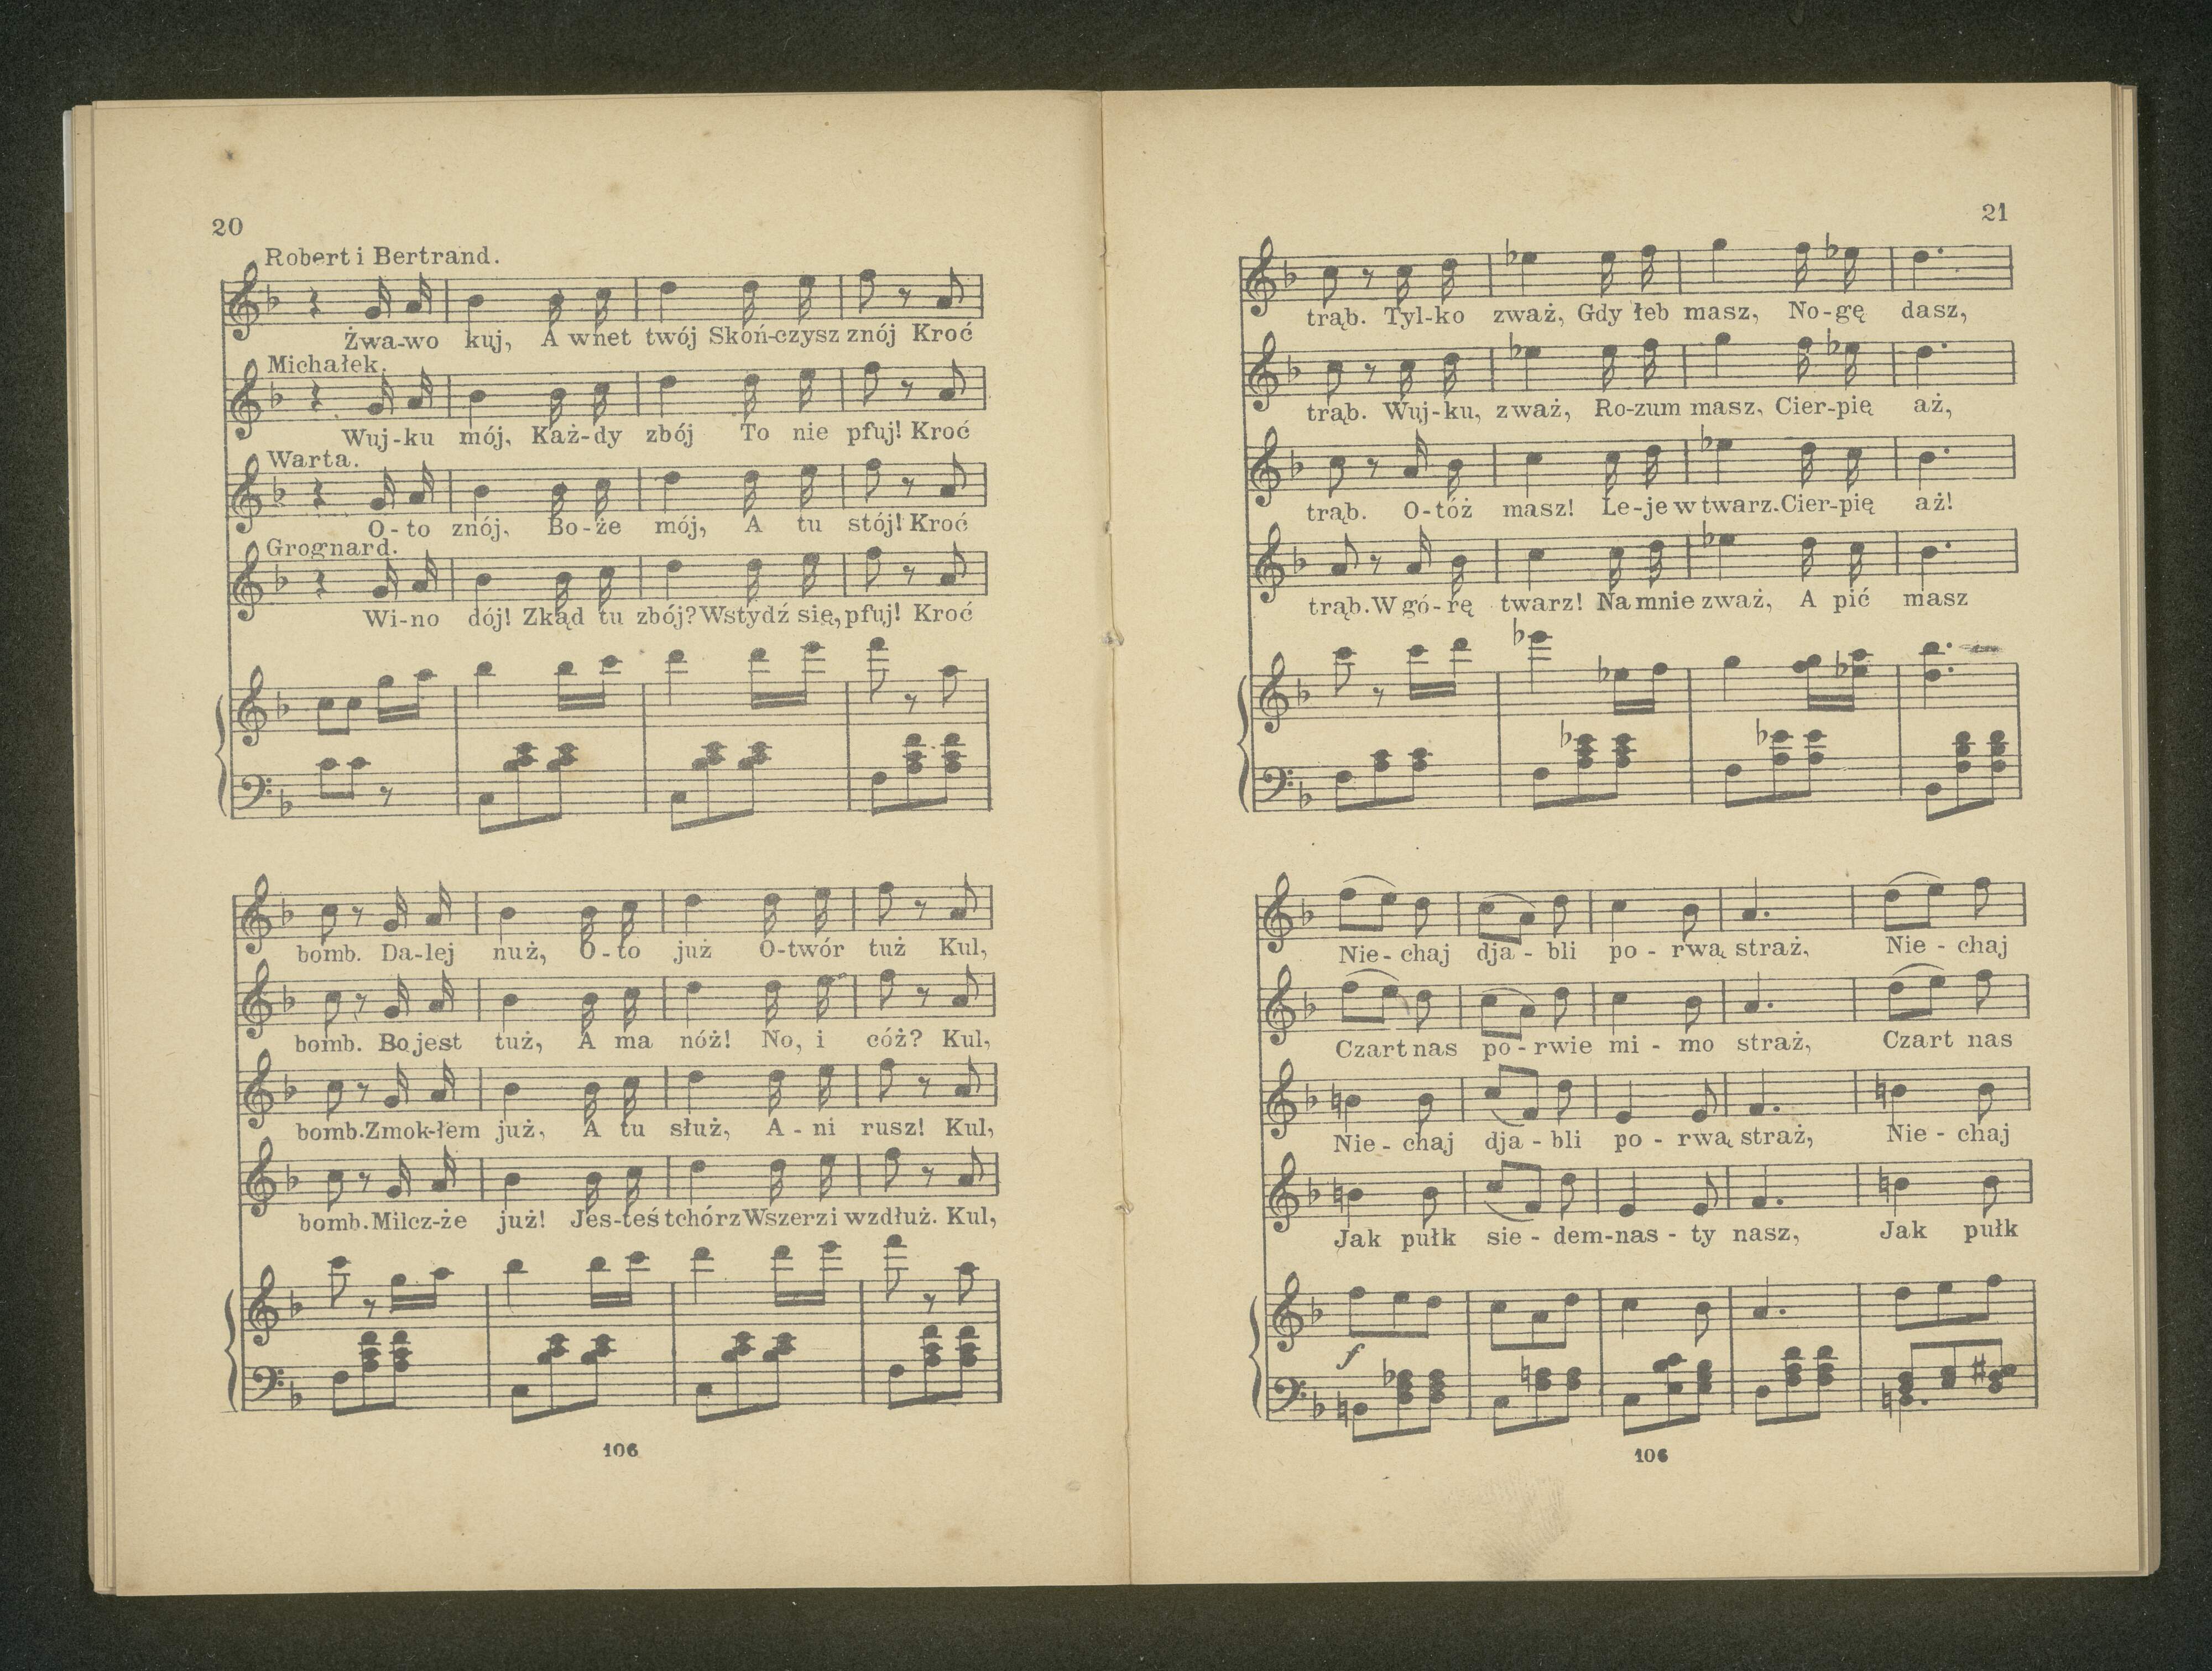 20
Robert i Bertrand.
Żwa-wo kuj, A wnet twój Skoń-czysz znój Kroć
Michałek.
Wuj-ku mój, Każ-dy zbój To nie pfuj! Kroć
Warta.
O-to znój, Bo-że mój, A tu stój! Kroć
Grognard.
Wi-no dój! Zkąd tu zbój? Wstydź się, pfuj! Kroć
bomb. Da-lej nuż, O-to już O-twór tuż Kul,
bomb. Bo jest tuż, A ma nóż! No, i cóż? Kul,
bomb. Zmok-łem już, A tu służ, A-ni rusz! Kul,
bomb. Milcz-że już! Jes-teś tchórz Wszerz i wzdłuż. Kul,
106
21
trąb. Tyl-ko zważ, Gdy łeb masz, No-gę dasz,
trąb. Wuj-ku, zważ, Ro-zum masz, Cier-pię aż,
trąb. O-tóż masz! Le-je w twarz. Cier-pię aż!
trąb. W gó-rę twarz! Na mnie zważ, A pić masz
Nie-chaj dja-bli po-rwą straż, Nie-chaj
Czart nas po-rwie mi-mo straż, Czart nas
Nie-chaj dja-bli po-rwą straż, Nie-chaj
Jak pułk sie-dem-nas-ty nasz, Jak pułk
f
106